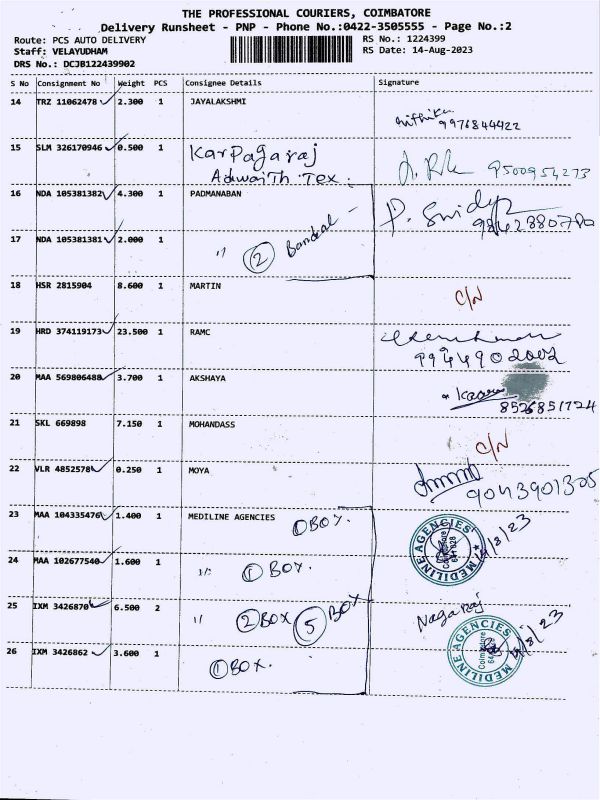 THE PROFESSIONAL COURIERS, COIMBATORE
Delivery Runsheet - PNP - Phone No.:0422-3505555 - Page No.:2
Route: PCS AUTO DELIVERY RS No.: 1224399
Staff: VELAYUDHAM RS Date: 14-Aug-2023
DRS No.: DCJB122439902
S No Consignment No Weight PCS Consignee Details Signature
14 TRZ 11062478 ✓ 2.300 1 JAYALAKSHMI
9976844422
15 SLM 326170946 ✓ 0.500 1 Karpagaraj
Adwaith Tex. 9500954273
16 NDA 105381382 ✓ 4.300 1 PADMANABAN
17 NDA 105381381 ✓ 2.000 1 〃 ②
18 HSR 2815904 8.600 1 MARTIN C/N
19 HRD 374119173 ✓ 23.500 1 RAMC
9944902002
20 MAA 569806488 ✓ 3.700 1 AKSHAYA
8526851724
21 SKL 669898 7.150 1 MOHANDASS C/N
22 VLR 4852578 ✓ 0.250 1 MOYA
9043901305
23 MAA 104335476 ✓ 1.400 1 MEDILINE AGENCIES ① BOX. MEDILINE AGENCIES Coimbatore
24 MAA 102677540 ✓ 1.600 1 〃 ① BOX.
25 IXM 3426870 ✓ 6.500 2 〃 ② BOX ⑤ BOX Nagaraj
26 IXM 3426862 ✓ 3.600 1 ① BOX. MEDILINE AGENCIES Coimbatore